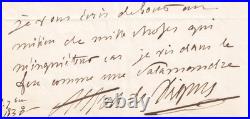 je vous écris debout au
milieu de mille choses qui
m'inquiètent car je vis dans le
feu comme une salamandre
Alfred de Vigny